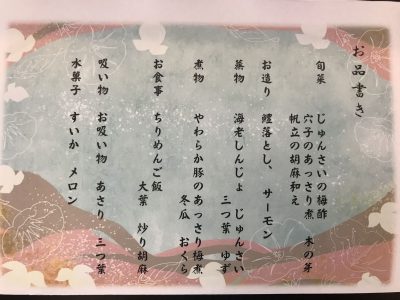 お品書き
旬菜 じゅんさいの梅酢
穴子のあっさり煮 木の芽
帆立の胡麻和え
お造り 鱧落とし、 サーモン
蒸物 海老しんじょ じゅんさい
三つ葉 ゆず
煮物 やわらか豚のあっさり梅煮
冬瓜 おくら
お食事 ちりめんご飯
大葉 炒り胡麻
吸い物 お吸い物 あさり 三つ葉
水菓子 すいか メロン